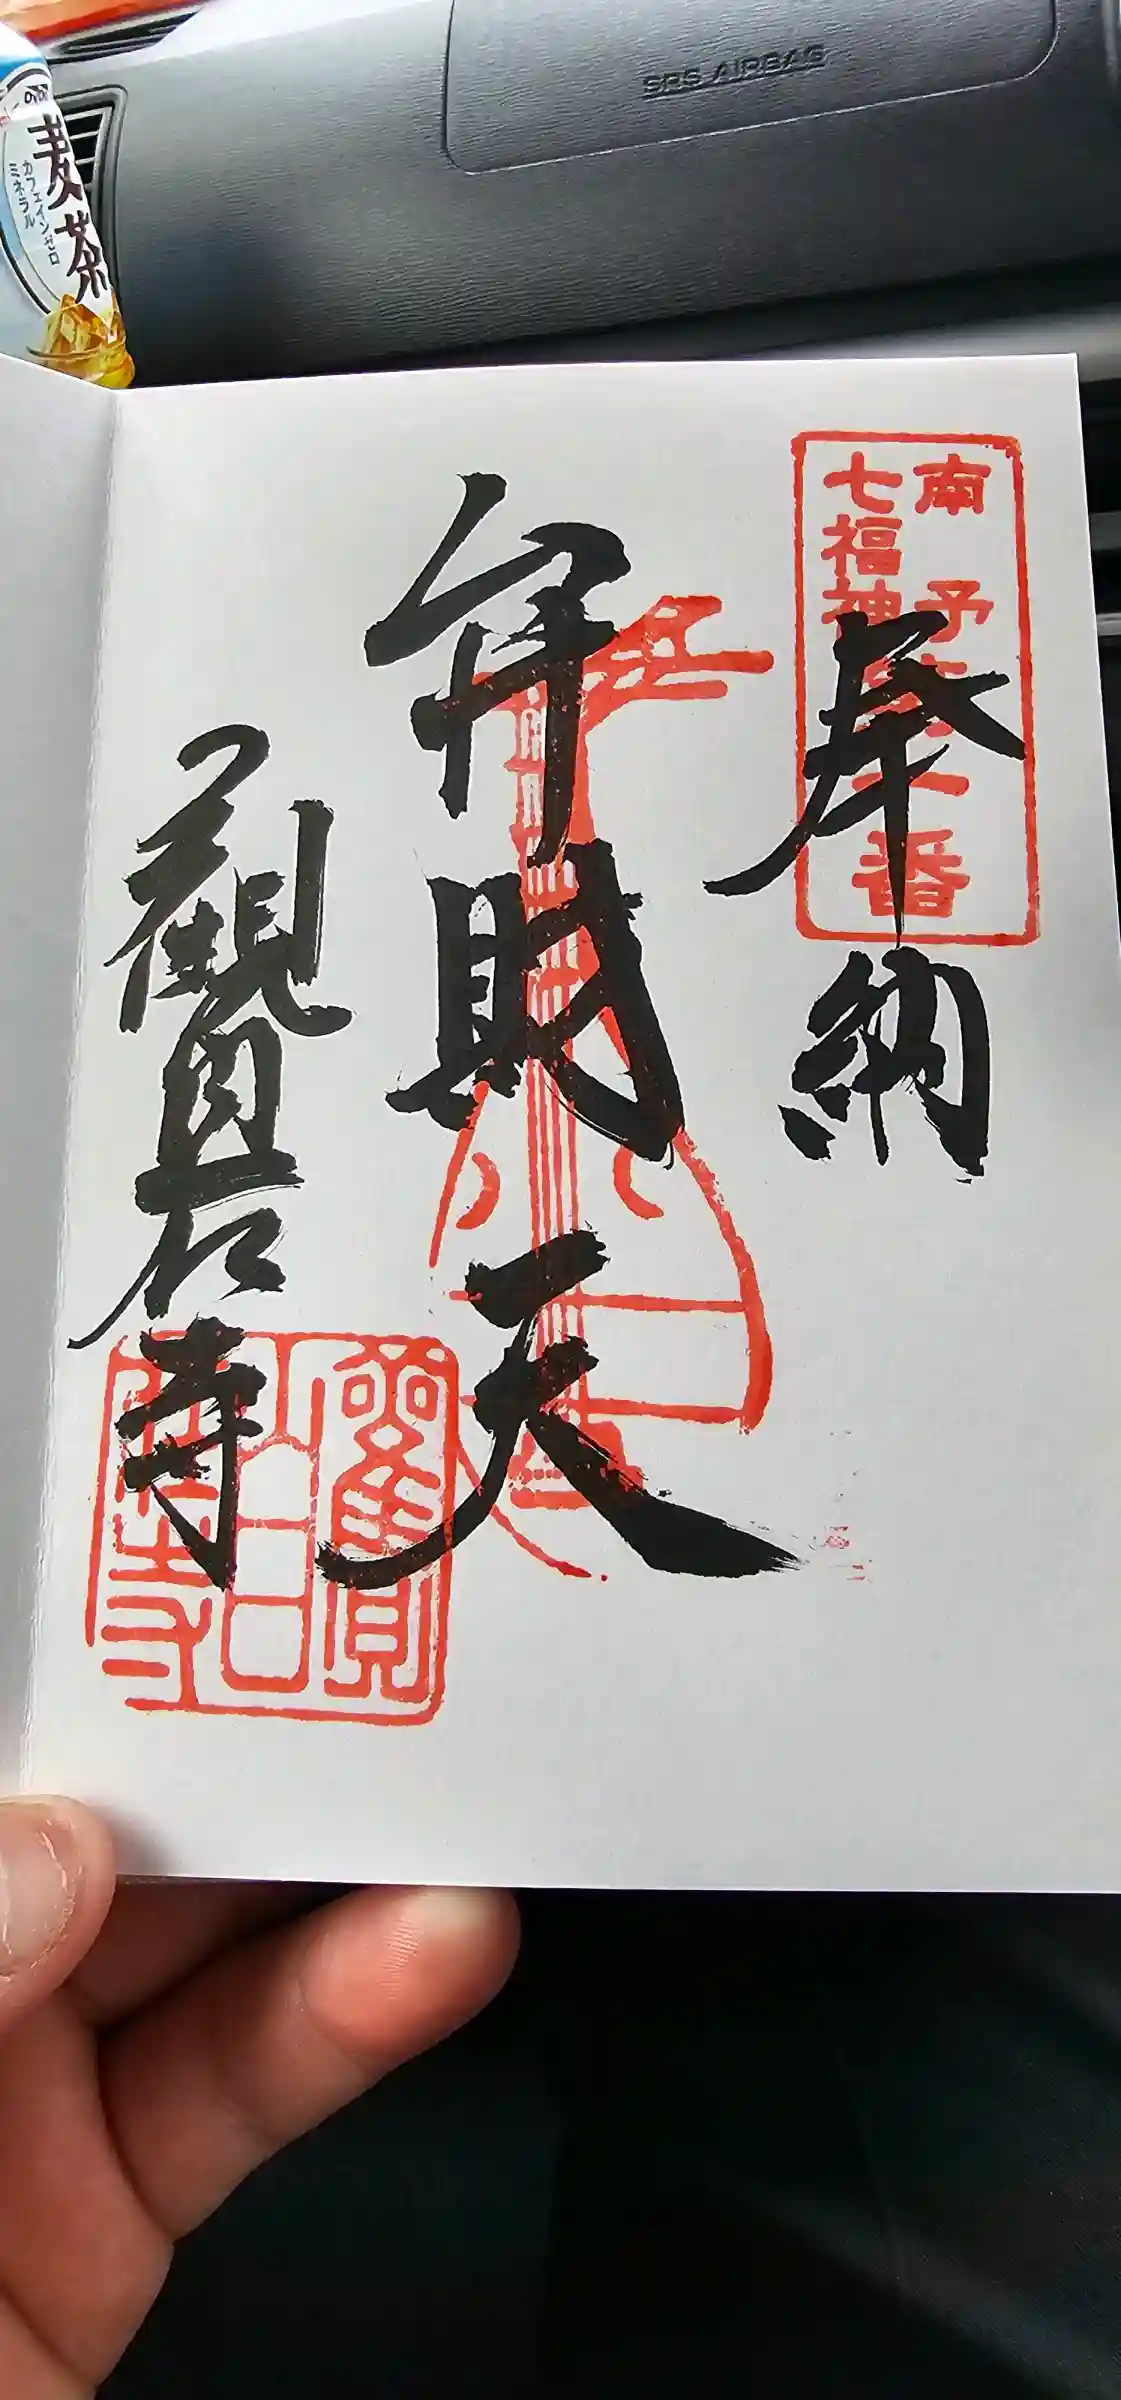 SRS AIRBAG
麦茶
カフェインゼロ
ミネラル
南予
七福神
番
奉納
弁財天
觀音岩寺